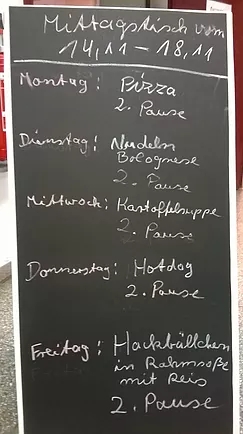 Mittagstisch vom
14,11 - 18,11
Montag: Pizza
2. Pause
Dienstag: Nudeln
Bolognese
2. Pause
Mittwoch: Kartoffelsuppe
2. Pause
Donnerstag: Hotdog
2. Pause
Freitag: Hackbällchen
in Rahmsoße
mit Reis
2. Pause